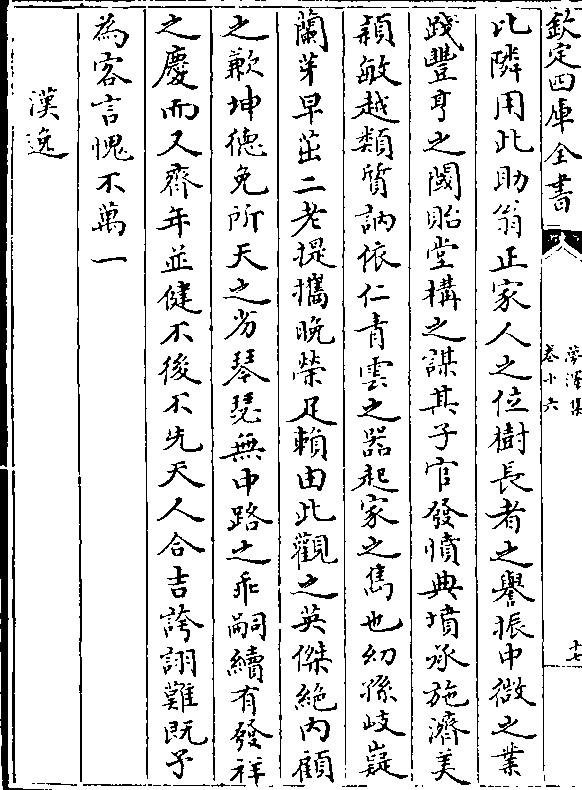 欽定四庫全書
卷十六
十七
比隣用此助翁正家人之位樹長者之譽振中微之業
踐豐亨之閾貽堂構之謀其子官發憤典墳承施濟美
穎敏越類質訥依仁青雲之器起家之雋也幼孫岐嶷
蘭芽早茁二老提攜晩榮足賴由此觀之英傑絶内顧
之歉坤德免所天之劣琴瑟無中路之乖嗣續有發祥
之慶而又齊年並健不後不先天人合吉誇詡難既予
為客言愧不萬一
漢逸